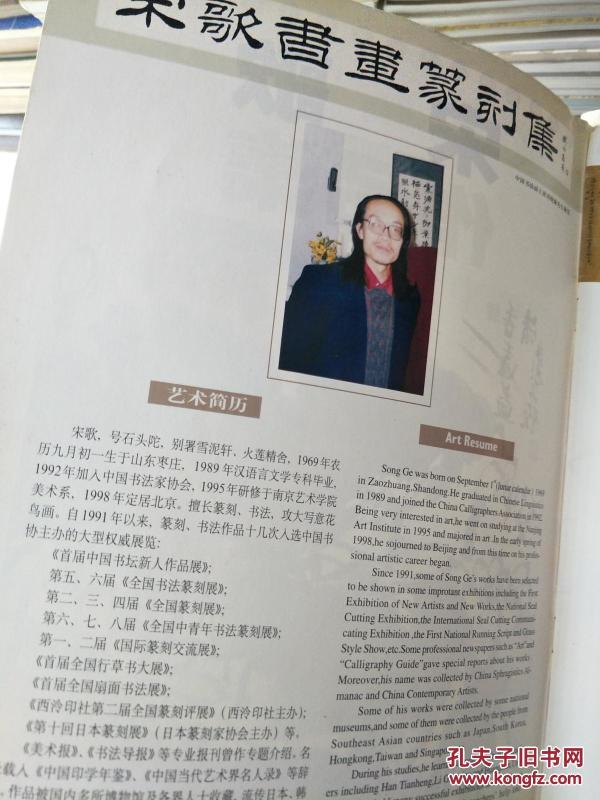 宋歌書畫篆刻集
艺术简历
宋歌，号石头陀，别署雪泥轩、火莲精舍，1969年农
历九月初一生于山东枣庄，1989年汉语言文学专科毕业，
1992年加入中国书法家协会，1995年研修于南京艺术学院
美术系，1998年定居北京。擅长篆刻、书法、攻大写意花
鸟画。自1991年以来，篆刻、书法作品十几次入选中国书
协主办的大型权威展览：
《首届中国书坛新人作品展》；
第五、六届《全国书法篆刻展》；
第二、三、四届《全国篆刻展》；
第六、七、八届《全国中青年书法篆刻展》；
第一、二届《国际篆刻交流展》；
《首届全国行草书大展》；
《首届全国扇面书法展》；
《西泠印社第二届全国篆刻评展》（西泠印社主办）；
《第十回日本篆刻展》（日本篆刻家协会主办）等。
《美术报》、《书法导报》等专业报刊曾作专题介绍。名
载入《中国印学年鉴》、《中国当代艺术界名人录》等辞
作品被国内名所博物馆及各界人士收藏，流传日本、韩
Art Resume
Song Ge was born on September 1st (lunar calendar) 1969
in Zaozhuang,Shandong.He graduated in Chinese Linguistics
in 1989 and joined the China Calligraphers Association in 1992.
Being very interested in art,he went on studying at the Nanjing
Art Institute in 1995 and majored in art .In the early spring of
1998,he sojourned to Beijing and from this time on his profes-
sional artistic career began.
Since 1991,some of Song Ge's works have been selected
to be shown in some improtant exhibitions including the First
Exhibition of New Artists and New Works,the National Seal
Cutting Exhibition, the International Seal Cutting Communi-
cating Exhibition ,the First National Running Script and Grass
Style Show,etc.Some professional newspapers such as "Art"and
"Calligraphy Guide"gave special reports about his works
Moreover,his name was collected by China Sphragistics Al-
manac and China Contemporary Artists.
Some of his works were collected by some national
museums,and some of them were collected by the people from
Southeast Asian countries such as Japan,South Korea,
Hongkong,Taiwan and Singapo
During his studies,he learn
ers including Han Tianheng,Li G
孔夫子旧书网
www.kongfz.com